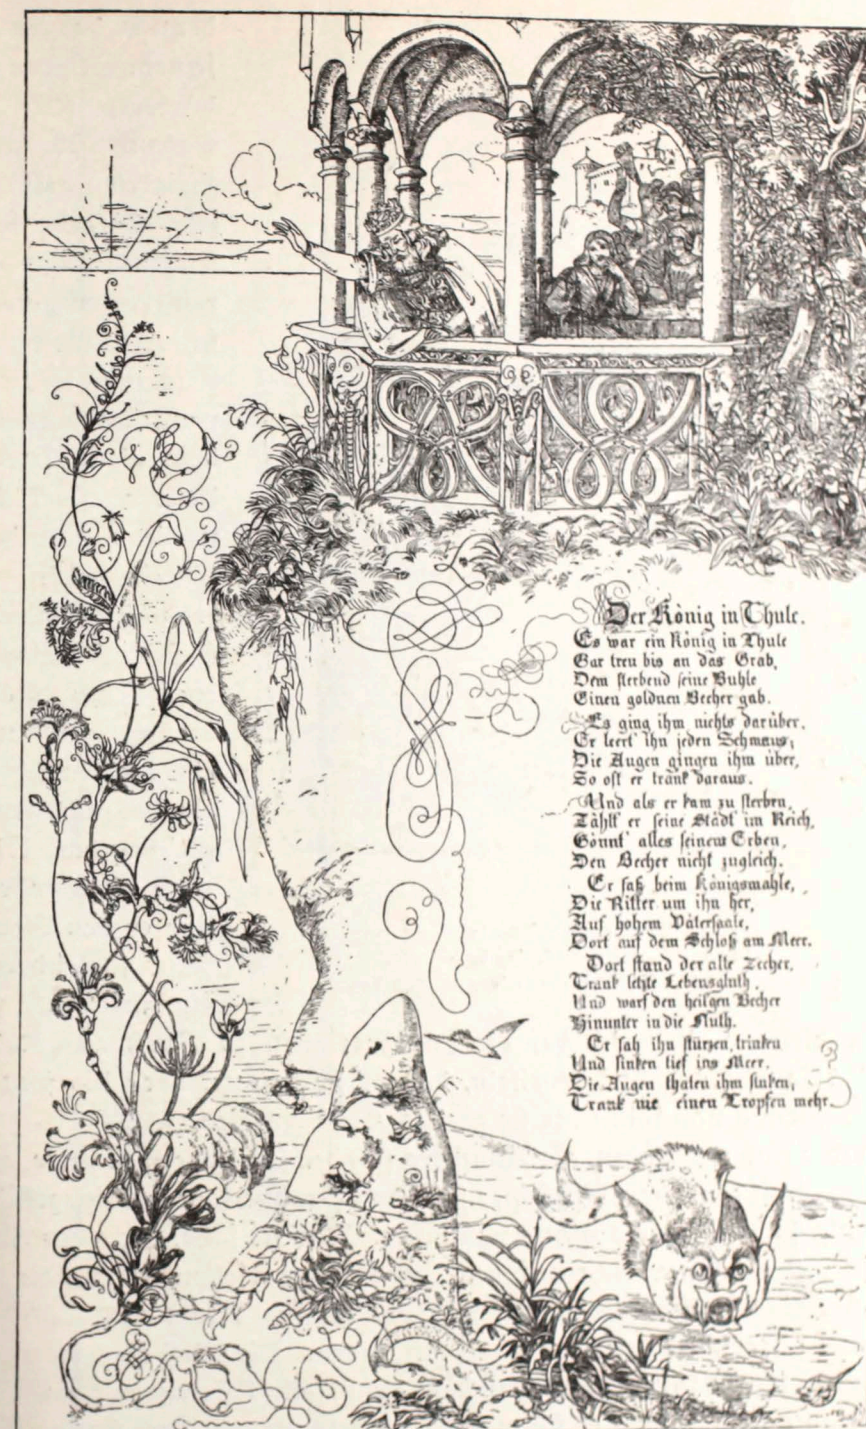 Der König in Thule.
Es war ein König in Thule
Gar treu bis an das Grab,
Dem sterbend seine Buhle
Einen goldnen Becher gab.
Es ging ihm nichts darüber,
Er leert' ihn jeden Schmaus;
Die Augen gingen ihm über,
So oft er trank daraus.
Und als er kam zu sterben,
Zählt' er seine Städt' im Reich,
Gönnt' alles seinem Erben,
Den Becher nicht zugleich.
Er saß beim Königsmahle,
Die Ritter um ihn her,
Auf hohem Vätersaale,
Dort auf dem Schloß am Meer.
Dort stand der alte Zecher,
Trank letzte Lebensgluth,
Und warf den heilgen Becher
Hinunter in die Fluth.
Er sah ihn stürzen, trinken
Und sinken tief ins Meer.
Die Augen thäten ihm sinken;
Trank nie einen Tropfen mehr.